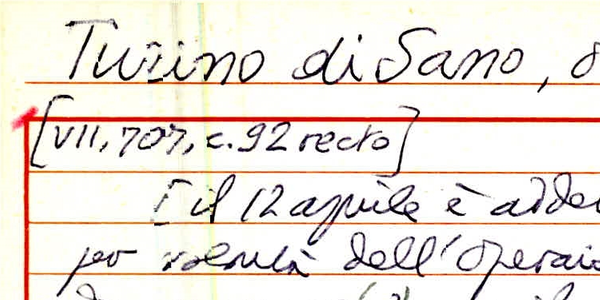 Turino di Sano, 8
[VII, 707, c. 92 recto]
[il 12 aprile è adde
per volontà dell'operaio